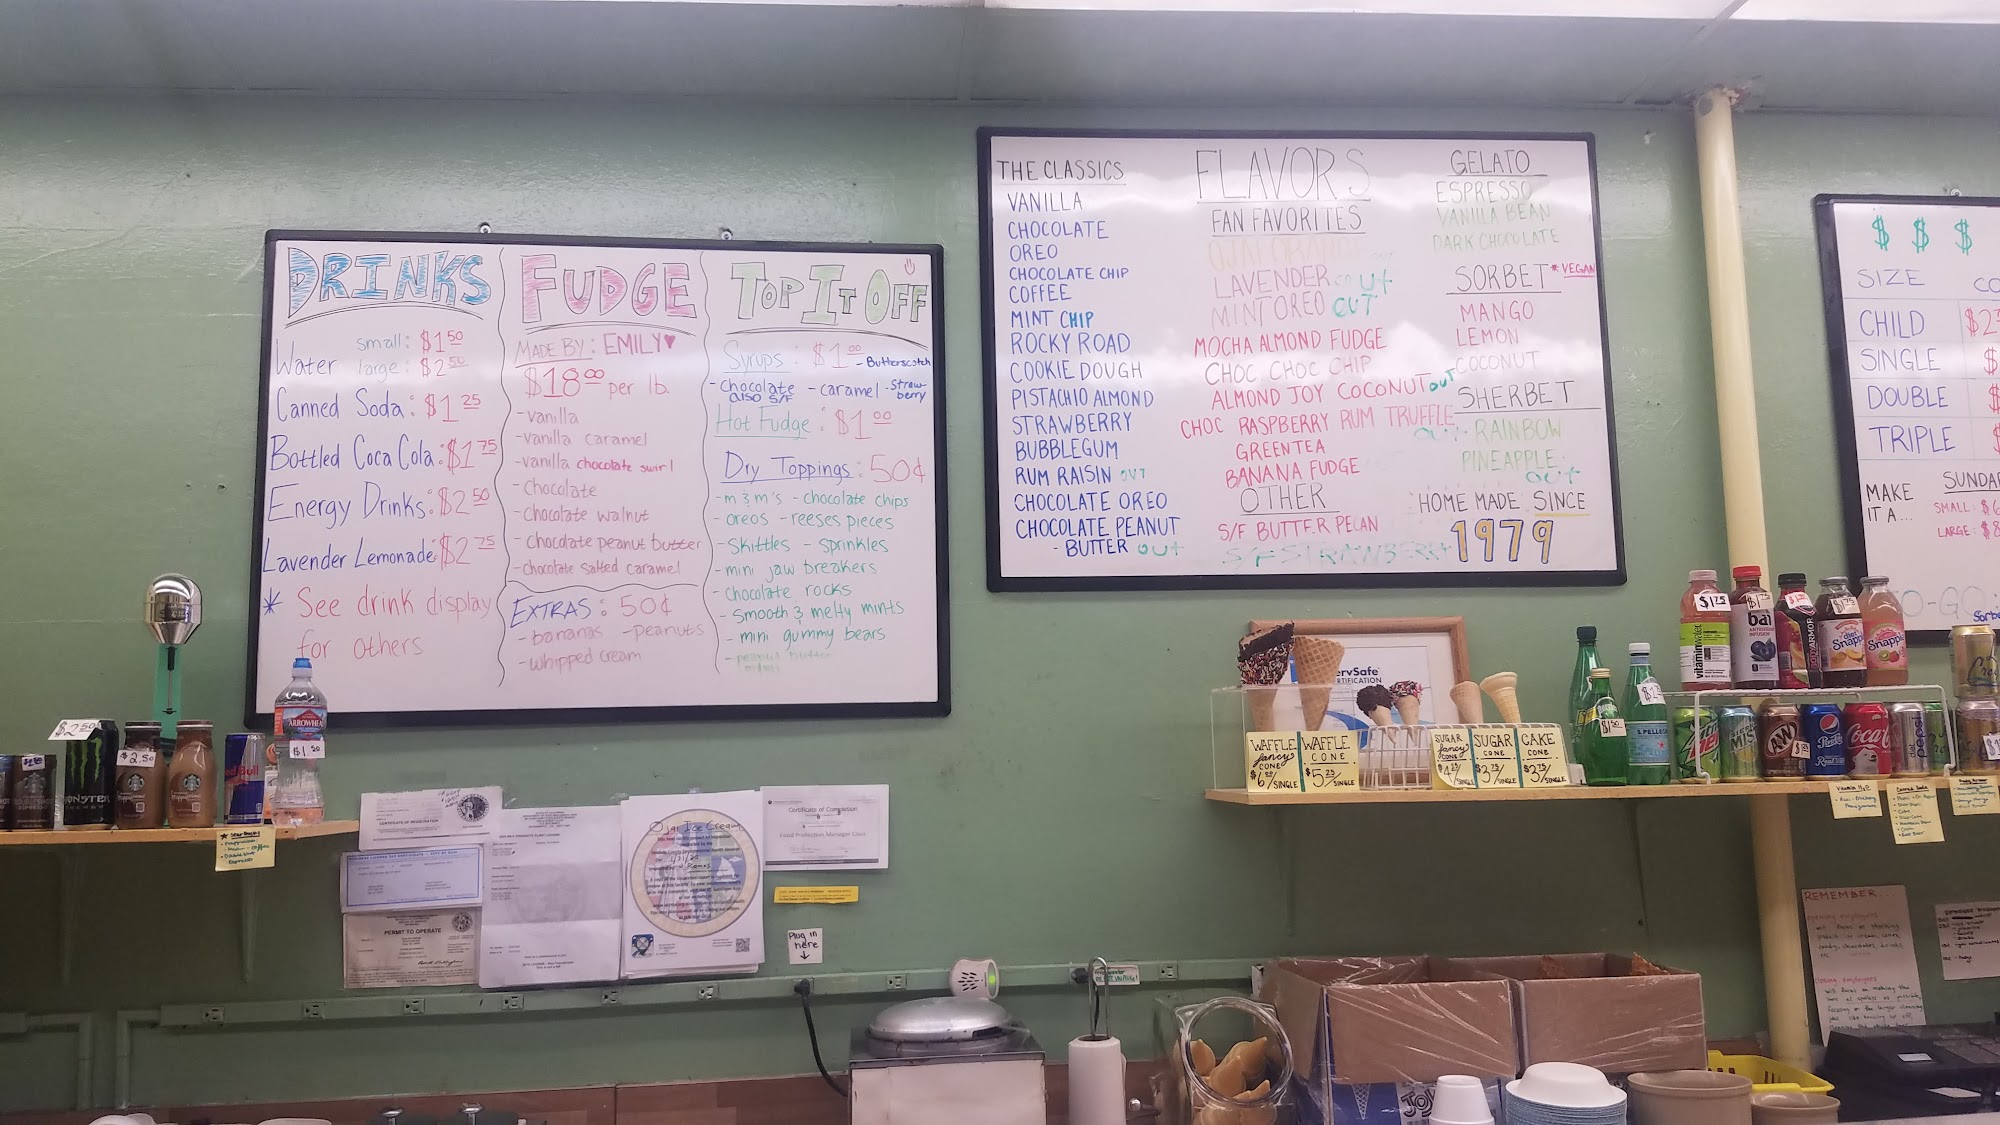 DRINKS
Water small: $1.50
large: $2.50
Canned Soda: $1.25
Bottled Coca Cola: $1.75
Energy Drinks: $2.50
Lavender Lemonade: $2.75
* See drink display
for others
FUDGE
MADE BY: EMILY♥
$18.00 per lb.
- vanilla
- vanilla caramel
- vanilla chocolate swirl
- chocolate
- chocolate walnut
- chocolate peanut butter
- chocolate salted caramel
EXTRAS: 50¢
- bananas - peanuts
- whipped cream
TOP IT OFF
Syrups: $1.00 - Butterscotch
- chocolate - caramel - Straw-
also S/F berry
Hot Fudge: $1.00
Dry Toppings: 50¢
- m & m's - chocolate chips
- oreos - reeses pieces
- skittles - sprinkles
- mini jaw breakers
- chocolate rocks
- smooth & melty mints
- mini gummy bears
- peanut butter
THE CLASSICS
VANILLA
CHOCOLATE
OREO
CHOCOLATE CHIP
COFFEE
MINT CHIP
ROCKY ROAD
COOKIE DOUGH
PISTACHIO ALMOND
STRAWBERRY
BUBBLEGUM
RUM RAISIN OUT
CHOCOLATE OREO
CHOCOLATE PEANUT
- BUTTER OUT
FLAVORS
FAN FAVORITES
OJAI ORANGE
LAVENDER OUT
MINT OREO OUT
MOCHA ALMOND FUDGE
CHOC CHOC CHIP
ALMOND JOY COCONUT OUT
CHOC RASPBERRY RUM TRUFFLE
OUT
GREEN TEA
BANANA FUDGE
OTHER
S/F BUTTER PECAN
S/F STRAWBERRY
GELATO
ESPRESSO
VANILLA BEAN
DARK CHOCOLATE
SORBET *VEGAN
MANGO
LEMON
COCONUT
SHERBET
RAINBOW
PINEAPPLE
OUT
HOME MADE SINCE
1979
$ $ $
SIZE CO
CHILD $2
SINGLE $
DOUBLE $
TRIPLE $
MAKE
IT A...
SUNDAE
SMALL: $6
LARGE: $8
O-GO
Sorbe
ServSafe
CERTIFICATION
WAFFLE
fancy
CONE
$6.00/SINGLE
WAFFLE
CONE
$5.25/SINGLE
SUGAR
fancy
CONE
$4.25/SINGLE
SUGAR
CONE
$3.75/SINGLE
CAKE
CONE
$3.75/SINGLE
$2.50
MONSTER
ENERGY
$2.50
Red Bull
ARROWHEAD
$1.50
$1.75
vitaminwater
$1.75
bai
BODYARMOR
$1.75
diet Snapple
Snapple
$1.50
S.PELLEGRINO
A&W
pepsi
Coca
diet pepsi
CERTIFICATE OF REGISTRATION
PERMIT TO OPERATE
Ojai Ice Cream
Certificate of Completion
Food Protection Manager Class
Plug in
here
↓
REMEMBER...
opening employees
closing employees
JOY